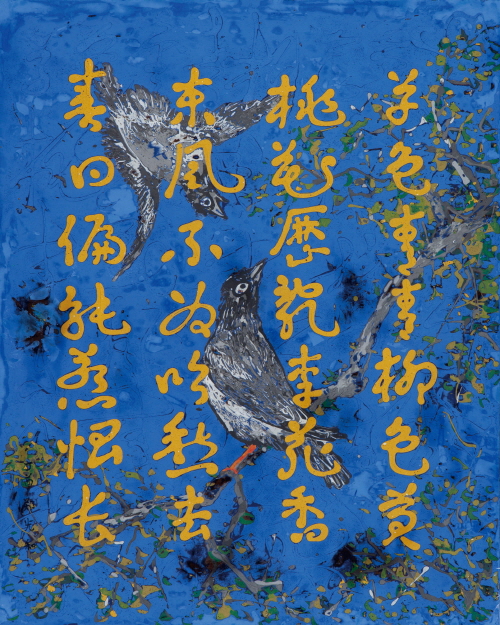 草色青青柳色黄
桃花歷亂李花香
東風不為吹愁去
春日偏能惹恨長